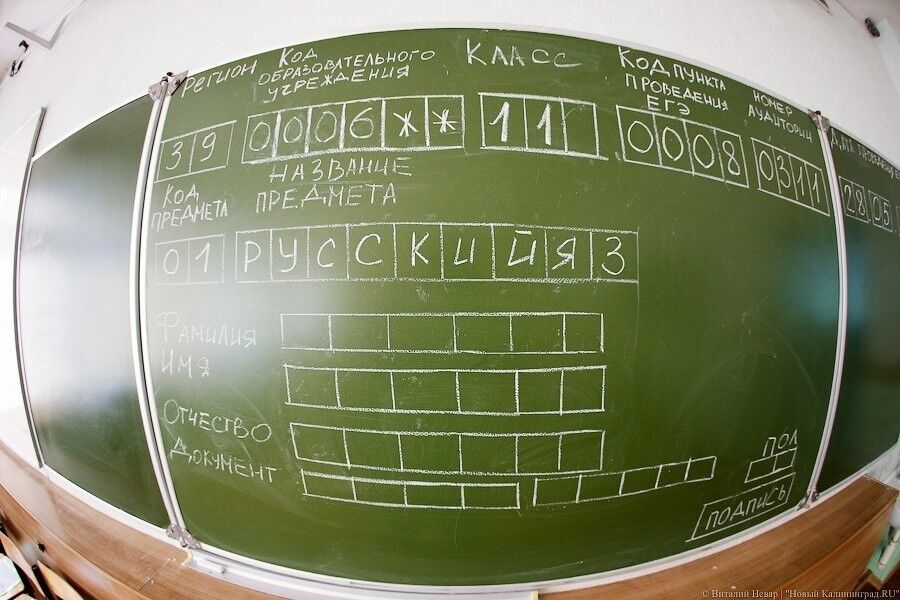 Регион
Код
образовательного
учреждения
Класс
Код пункта
проведения
ЕГЭ
Номер
аудитории
39
0006**
11
0008
0311
28 05
Код
предмета
Название
предмета
01
РУССКИЙ ЯЗ
Фамилия
Имя
Отчество
Документ
Пол
Подпись
© Виталий Невар | "Новый Калининград.RU"